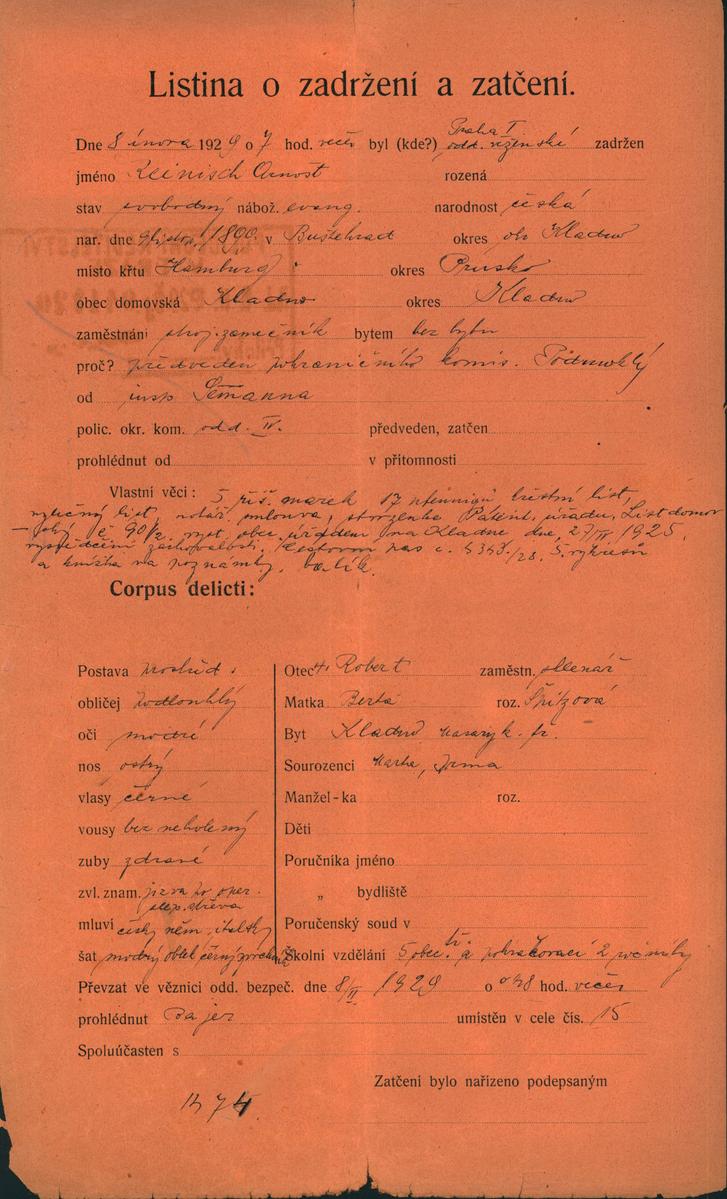 Listina o zadržení a zatčení.
Dne 8 února 1929 o 7 hod. več. byl (kde?) Praha I. odd. zadržen
jméno Reinisch Arnošt rozená
stav svobodný nábož. evang. narodnost česká
nar. dne 1890 v Buštěhrad okres Kladno
místo křtu Hamburg okres Prusko
obec domovská Kladno okres Kladno
zaměstnání stroj. zámečník bytem bez bytu
proč? předveden pohraničního komis. Podmokly
od insp.
polic. okr. kom. odd. IV. předveden, zatčen
prohlédnut od v přítomnosti
Vlastní věci: 5 říš. marek 17 pfennigů křestní list,
výuční list, notář. smlouva, Patent. úřadu, List domov
ský č 90/2 vyst. obec. úřadem na Kladně dne, 27/ 1925,
vysvědčení zachovalosti, cestovní pas č. /28.
a knížka na poznámky,
Corpus delicti:
Postava prostřed.
obličej podlouhlý
oči modré
nos ostrý
vlasy černé
vousy bez neholený
zuby zdravé
zvl. znam. jizva po oper. slep. střeva
mluví česky něm, italsky
šat modrý oblek černý
Otec Robert zaměstn.
Matka Berta roz. Špitzová
Byt Kladno Masaryk. tř.
Sourozenci Marta, Irma
Manžel-ka roz.
Děti
Poručníka jméno
„ bydliště
Poručenský soud v
Školní vzdělání 5 obec. a pokračovací 2 ročníky
Převzat ve věznici odd. bezpeč. dne 8/II 1929 o 8 hod. večer
prohlédnut Bajer umístěn v cele čís. 15
Spoluúčasten s
Zatčení bylo nařízeno podepsaným
74